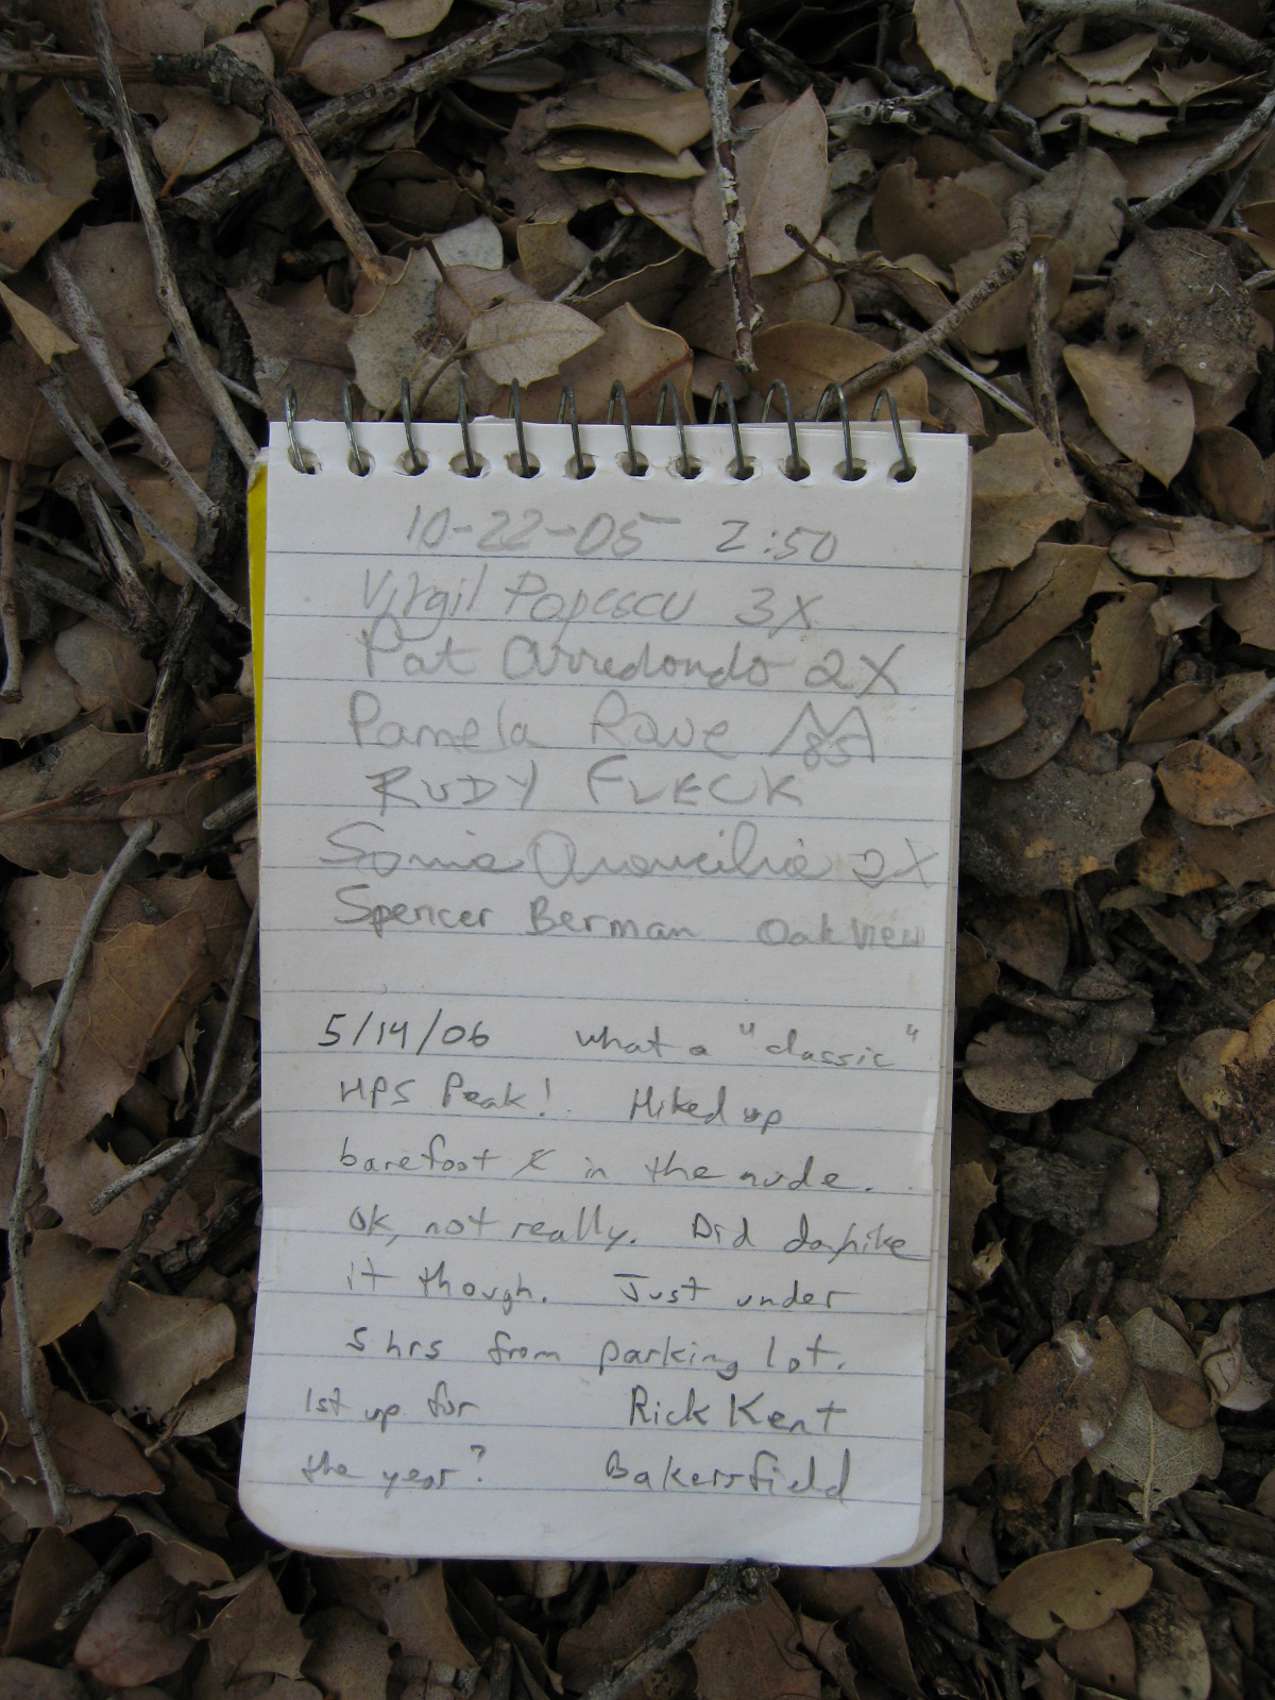 10-22-05 2:50
Virgil Popescu 3X
Pat Arredondo 2X
Pamela Rowe 85
RUDY FLECK
Sonia 2X
Spencer Berman Oak View
5/14/06 what a "classic"
HPS Peak! Hiked up
barefoot & in the nude.
Ok, not really. Did dayhike
it though. Just under
5 hrs from parking lot.
1st up for Rick Kent
the year? Bakersfield